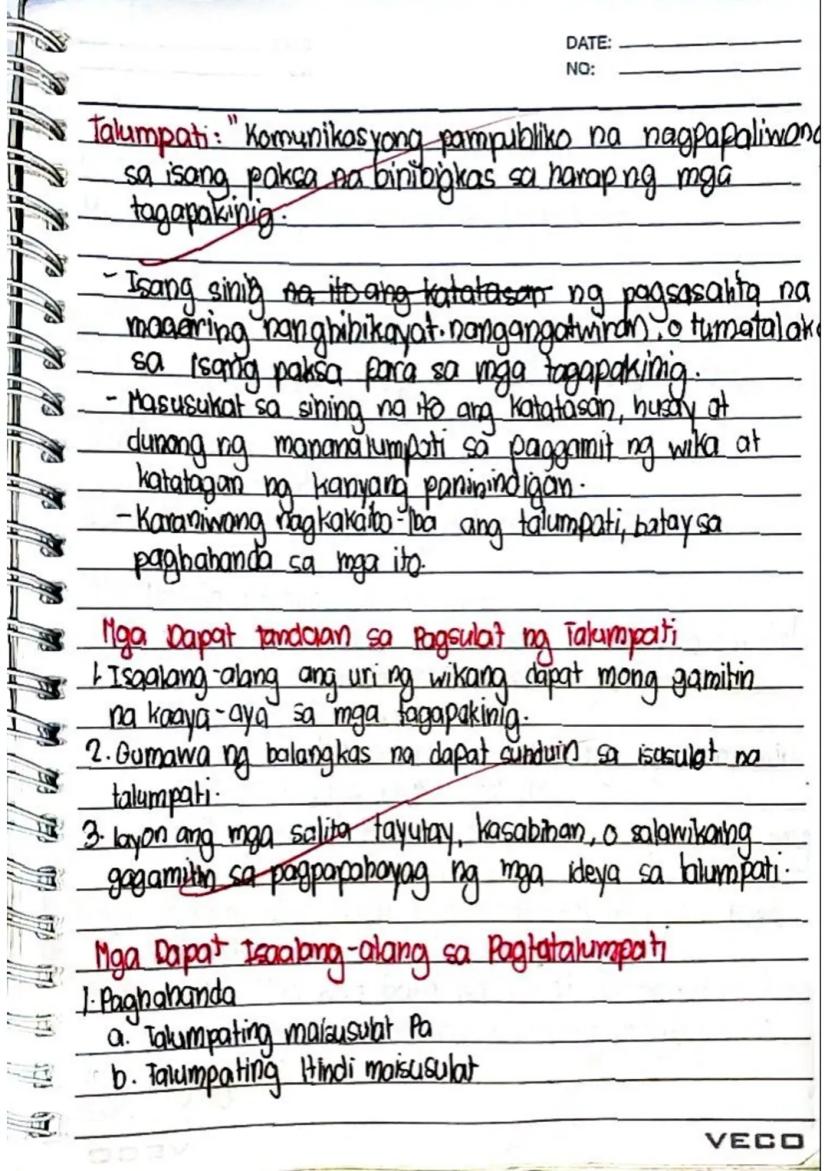 DATE:
NO:
Talumpati: "Komunikasyong pampubliko na nagpapaliwang
sa isang paksa na binibigkas sa harap ng mga
tagapakinig.
- Isang sinig na ito ang katatasan ng pagsasalita na
maaaring nanghihikayat. nangangatwiran, o tumatalak
sa isang paksa para sa mga tagapakinig.
- Masusukat sa sining na ito ang katatasan, husay at
dunong ng mananalumpati sa paggamit ng wika at
katatagan ng kanyang paninindigan.
- Karaniwang nagkakaiba-iba ang talumpati, batay sa
paghahanda sa mga ito.
Mga Dapat tandaan sa Pagsulat ng Talumpati
1. Isaalang-alang ang uri ng wikang dapat mong gamitin
na kaaya-aya sa mga tagapakinig.
2. Gumawa ng balangkas na dapat sunduin sa isasulat na
talumpati.
3. layon ang mga salita tayutay, kasabihan, o salawikaing
gagamitin sa pagpapahayag ng mga ideya sa talumpati.
Mga Dapat Isaalang-alang sa Pagtatalumpati
1. Paghahanda
a. Talumpating maisusulat Pa
b. Talumpating Hindi maisusulat
VECO